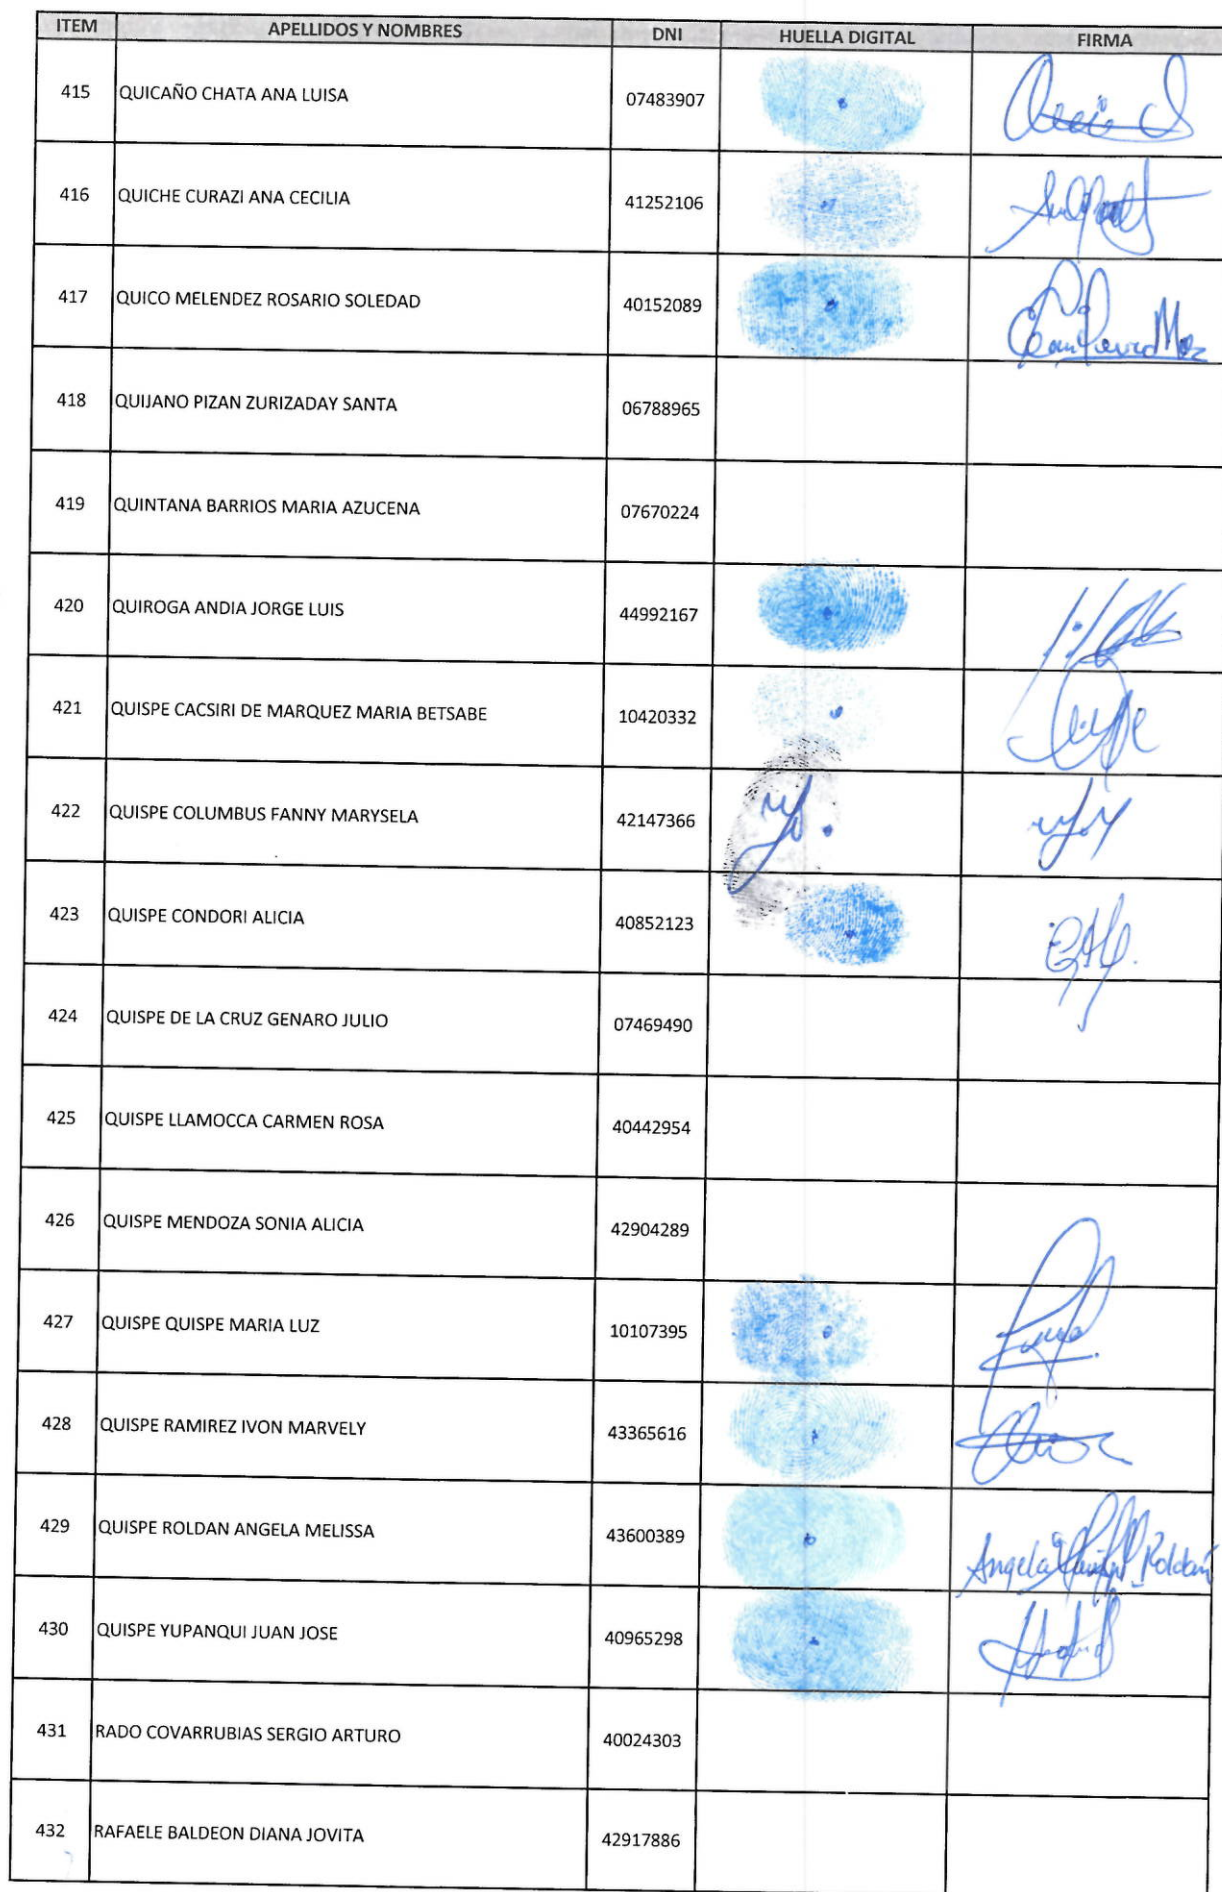 ITEM APELLIDOS Y NOMBRES DNI HUELLA DIGITAL FIRMA
415 QUICAÑO CHATA ANA LUISA 07483907
416 QUICHE CURAZI ANA CECILIA 41252106
417 QUICO MELENDEZ ROSARIO SOLEDAD 40152089
418 QUIJANO PIZAN ZURIZADAY SANTA 06788965
419 QUINTANA BARRIOS MARIA AZUCENA 07670224
420 QUIROGA ANDIA JORGE LUIS 44992167
421 QUISPE CACSIRI DE MARQUEZ MARIA BETSABE 10420332
422 QUISPE COLUMBUS FANNY MARYSELA 42147366
423 QUISPE CONDORI ALICIA 40852123
424 QUISPE DE LA CRUZ GENARO JULIO 07469490
425 QUISPE LLAMOCCA CARMEN ROSA 40442954
426 QUISPE MENDOZA SONIA ALICIA 42904289
427 QUISPE QUISPE MARIA LUZ 10107395
428 QUISPE RAMIREZ IVON MARVELY 43365616
429 QUISPE ROLDAN ANGELA MELISSA 43600389 Angela Roldan
430 QUISPE YUPANQUI JUAN JOSE 40965298
431 RADO COVARRUBIAS SERGIO ARTURO 40024303
432 RAFAELE BALDEON DIANA JOVITA 42917886